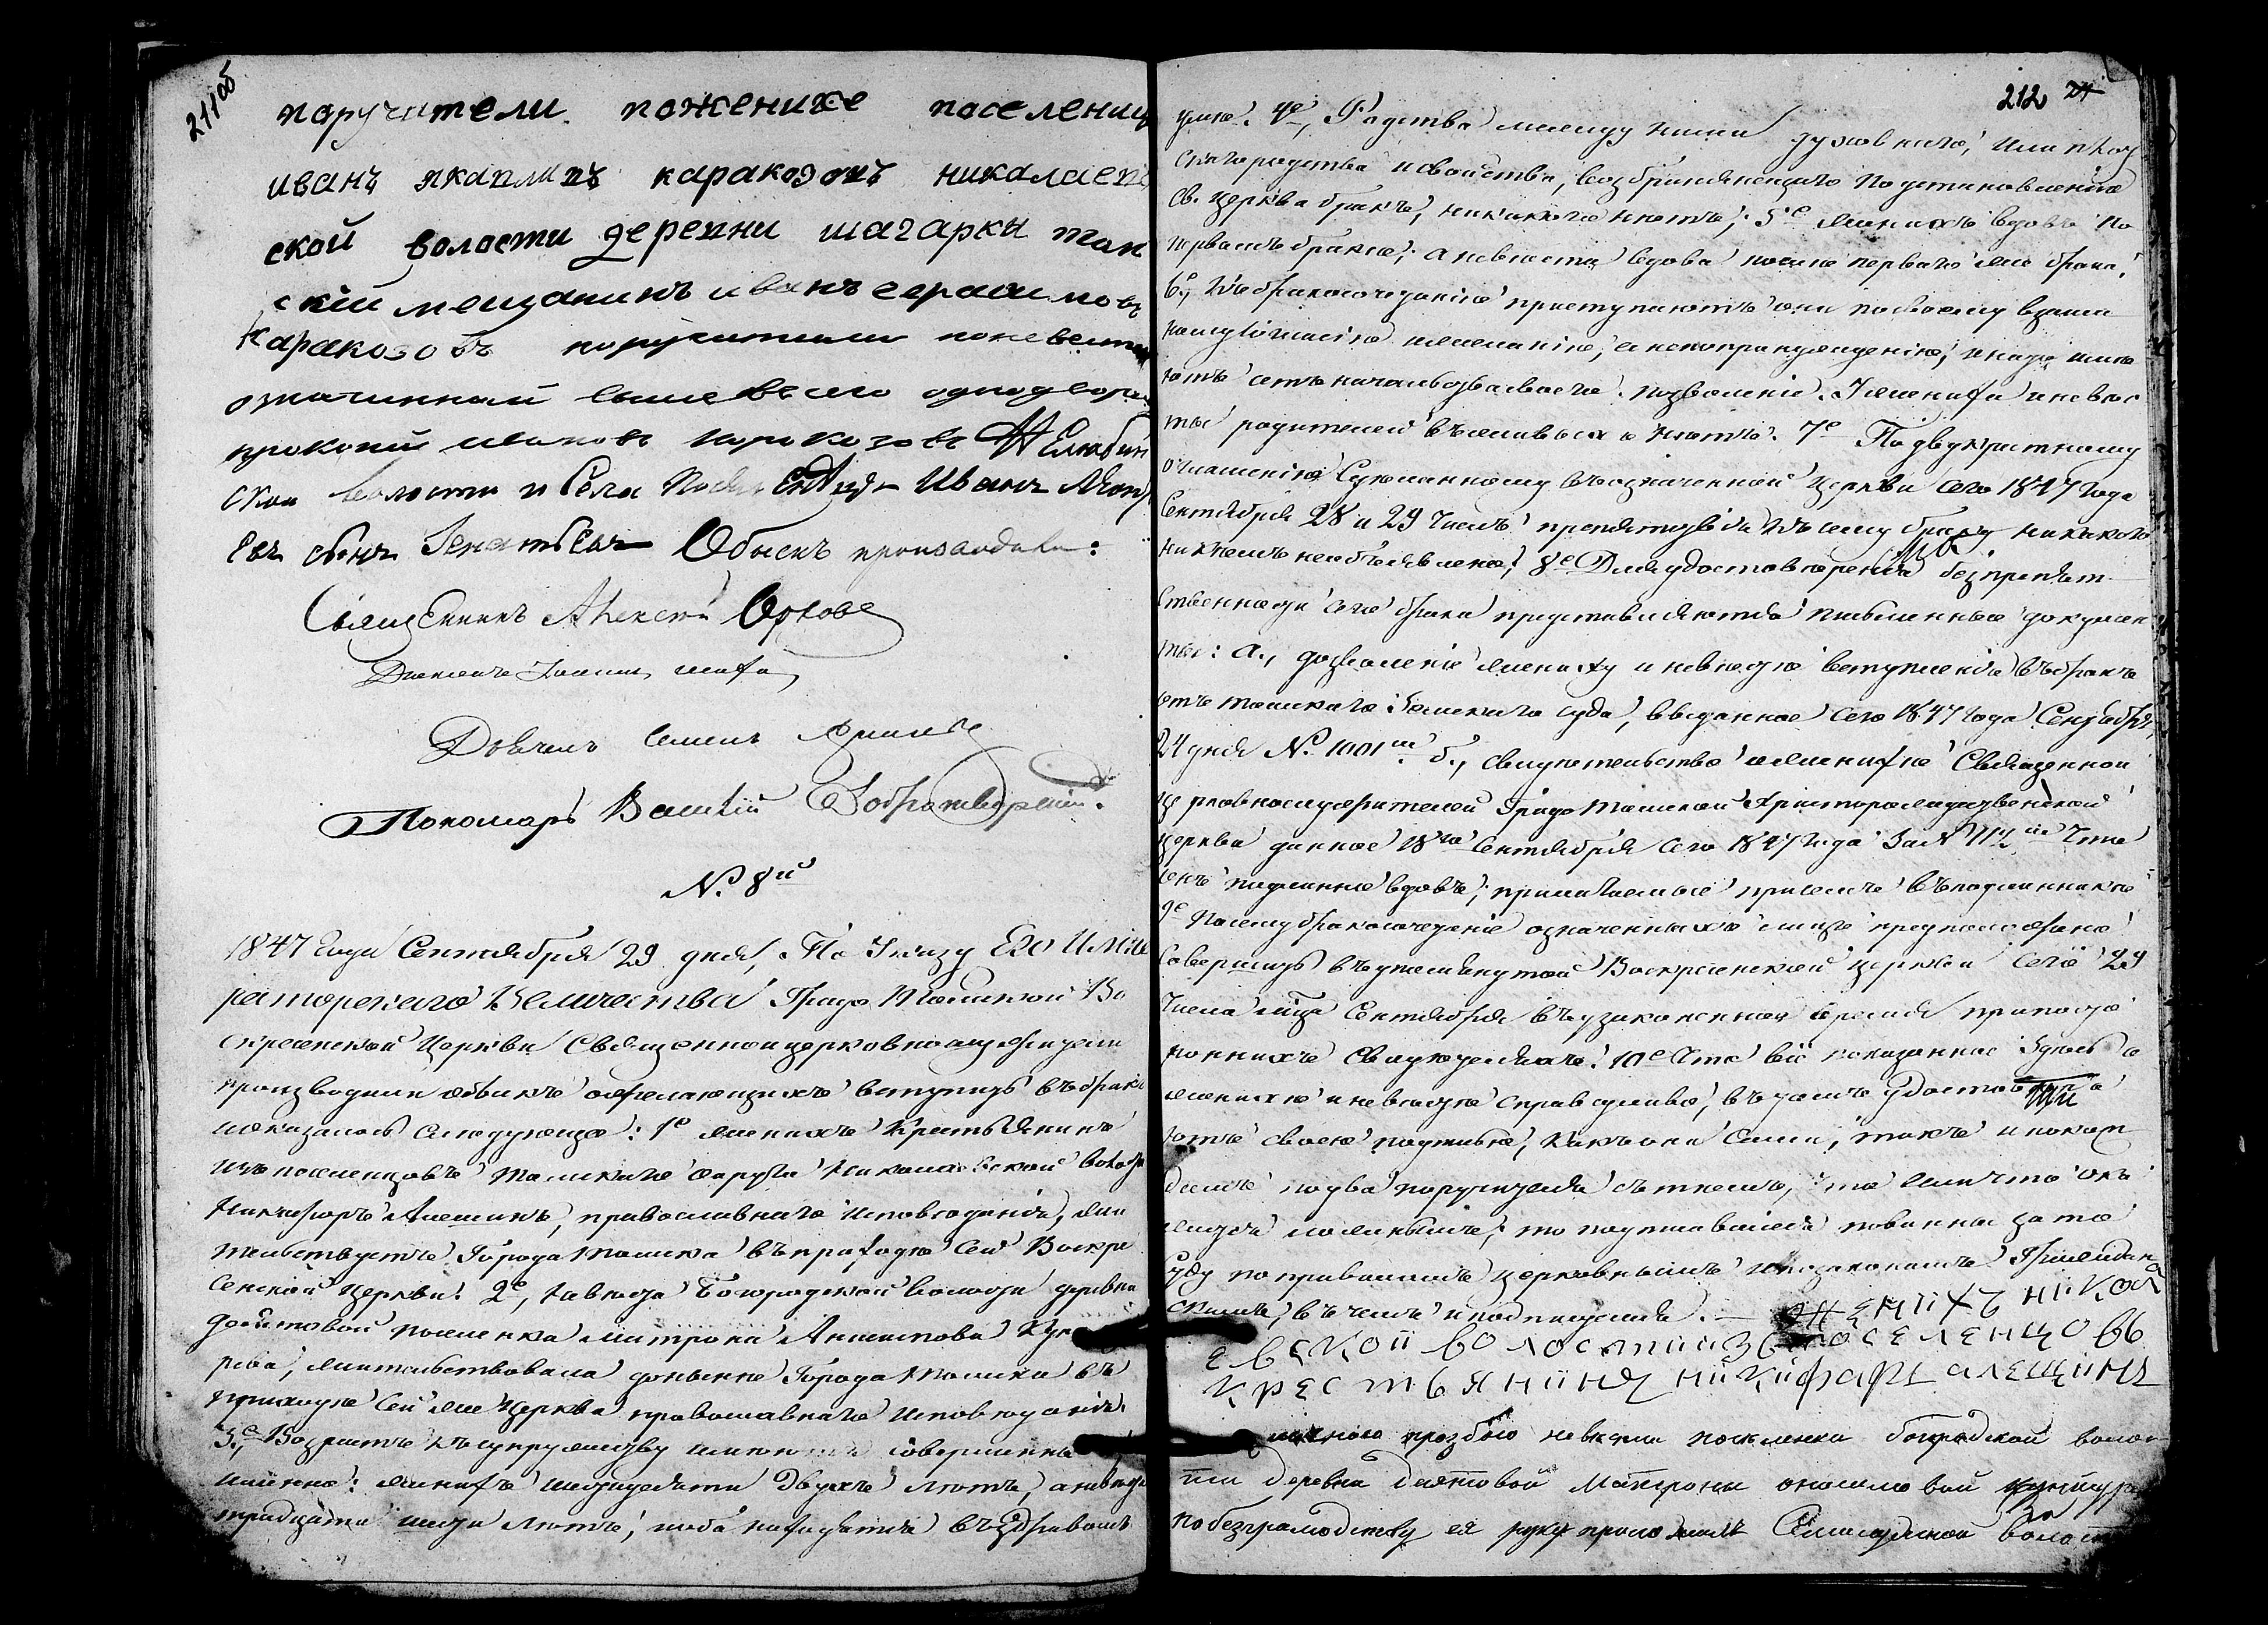 211об
поручители пожениже поселенцы
иванъ яковлевъ каракозовъ николаев
ской воласти деревни шагарки том
ской мещанинъ иванъ герасимовъ
Каракозовъ поручители поневесте
означинной выше всего однодворец
прокопий каракозовъ Желюбин
ской волости и Села Иванъ
евъ сынъ Игнатьевъ Обыскъ производили:
Священникъ Алексей Орлов
Диаконъ Иоаннъ
Дьячекъ Семенъ
Пономарь Василий Добротворский.
№. 8й
1847 Года Сентября 29 дня, По Указу Его Импе
раторскаго Величества Градо Томской Во
скресенской Церкви Священноцерковнослужители
производили обыскъ о желающихъ вступить въ бракъ
и оказалось следующее: 1е женихъ Крестьянинъ
изъ поселенцовъ Томскаго округа Николаевской волости
Никифоръ Алещинъ, православнаго исповеданія, жи
тельствуетъ Города Томска въ приходе сей Воскре
сенской Церкви. 2е, Невеста Богородской волости деревни
поселенка Матрона
жительствовала доныне Города Томска въ
приходе сей же Церкви православнаго исповеданія.
3е, Возрастъ къ супружеству имеютъ совершенный
именно: женихъ шестидесяти двухъ летъ, а невеста
тридцати шести летъ, оба находятся въ здравомъ
212 21
уме. 4е, Родства между ними духовнаго, или плот
скаго родства и свойства, возбраняющаго по установленію
Св. Церкви бракъ, никакого нетъ; 5е женихъ вдовъ по
первомъ браке, а невеста вдова после перваго же брака.
6е, Къ бракосочетанію приступаютъ они по своему взаим
ному согласію и желанію, а не по принужденію, и на то име
ютъ отъ начальства своего позволеніе. У жениха и невес
ты родителей въ живыхъ нетъ. 7е По двукратному
оглашенію Сделанному въ означенной Церкви сего 1847 года
Сентября 28 и 29 числъ препятствія къ сему браку никакого
никемъ не объявлено. 8е Для удостоверенія безпрепят
ственности сего брака представляются письменные докумен
ты: а., дозволеніе жениху и невесте вступленія въ бракъ
отъ томскаго Земскаго суда, выданное сего 1847 года Сентября
24 дня №. 1001м. б., свидетельство о женихе Священно
церковнослужителей Градо Томской Христорождественской
церкви данное 18го Сентября сего 1847 года За № что
онъ подлинно вдовъ; прилагаемые при семъ въ подлиннике
9е Посему бракосочетаніе означенныхъ лицъ предположено
Совершить въ упомянутой Воскресенской церкви сего 29
Числа м͠ца Сентября въ узаконенное время при посто
роннихъ свидетеляхъ. 10е Что всё показанное здесь о
женихе и невесте справедливо, въ томъ удостоверя
ютъ своею подпискою, какъ они сами, такъ и по каж
домъ по два поручителя съ темъ, что если что ока
жется ложнымъ, то подписавшіеся повинны за то
Суду по правиламъ церковнымъ и по законамъ Граждан
скимъ, въ чемъ и подписуемся. — женихъ никол
евской воластииизъ поселенцовъ
крестьянинъ никифаръ алещинъ
личною прозбою невесты поселенки богородской волос
ти деревни Матроны
по безграмодству ея руку приложилъ волост